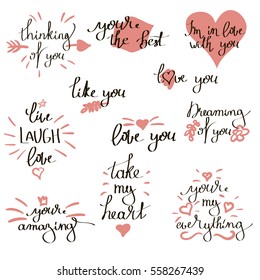 thinking
of you
you're
the best
I'm in love
with you
love you
like you
live
LAUGH
love
love you
Dreaming
of you
take
my
heart
you're
amazing
you're
my
everything
shutterstock.com · 558267439